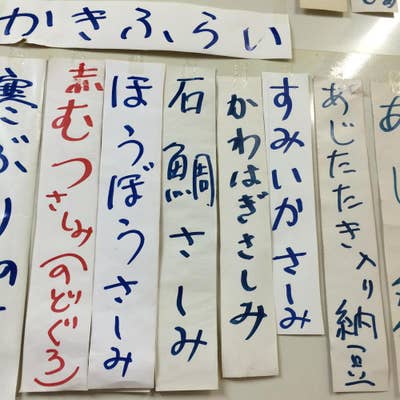 かきふらい
あじたたき入り納(豆)
すみいかさしみ
かわはぎさしみ
石鯛さしみ
ほうぼうさしみ
赤むつさしみ(のどぐろ)
寒ぶりの